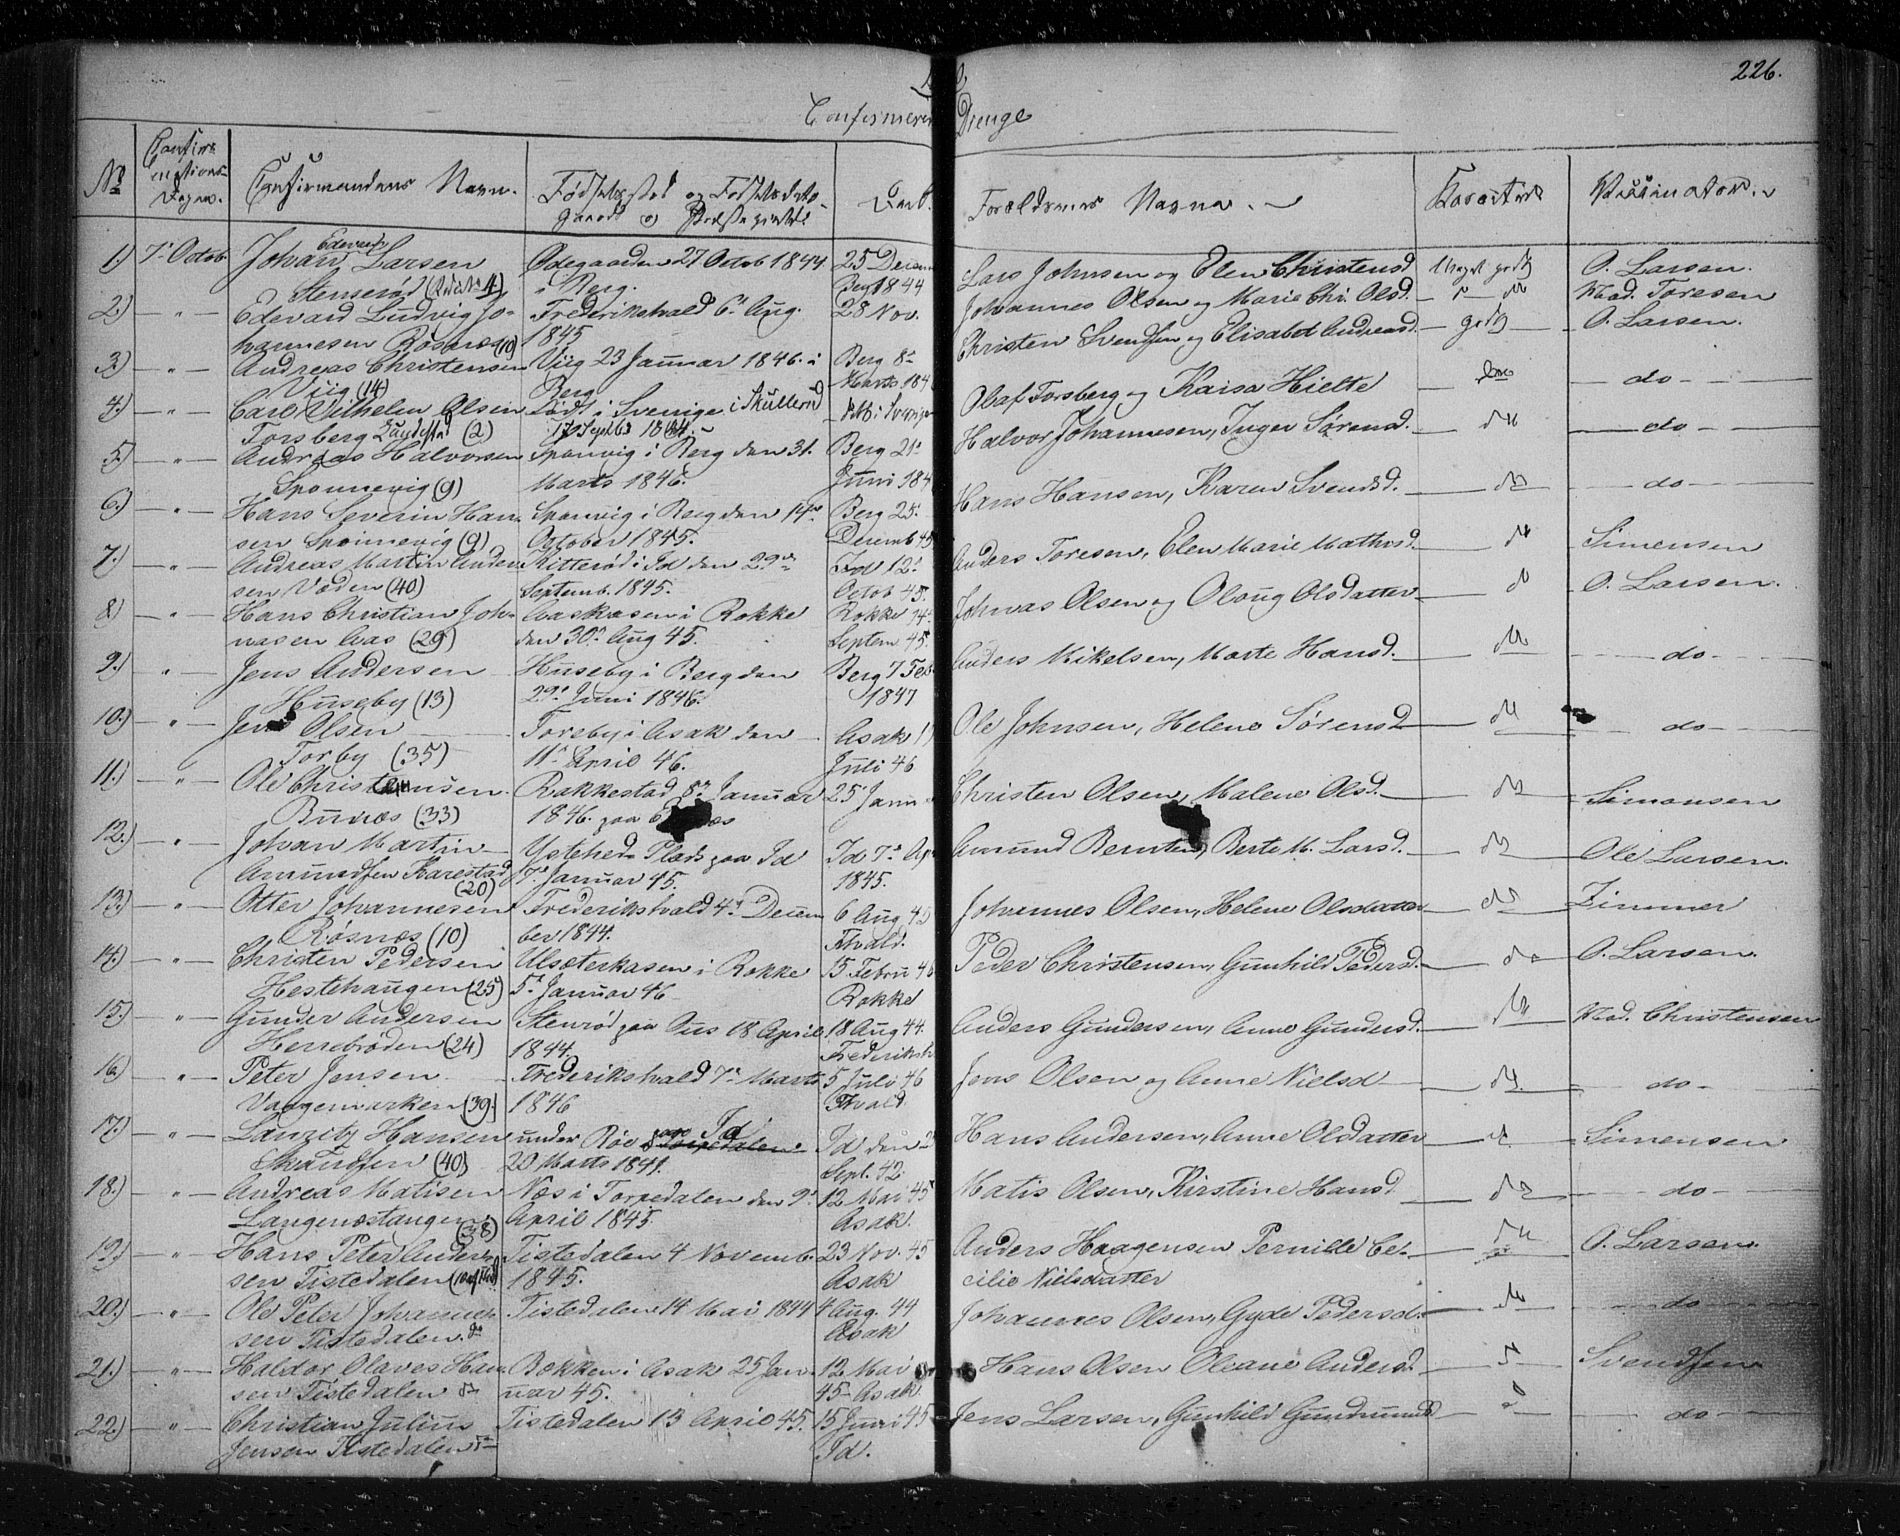 226.
Confirmere Drenge
No Confirmations Dagen. Confirmandens Navn. Fødselssted og Fødselsdato Daab. Forældrenes Navne. Karakter Vaccinator.
1.) 7de Octob. Johan Edevard Larsen Ødegaarden 27 Octob 1844 25 Decem Lars Johnsen og Elen Christensd Meget godt O. Larsen.
Stenerød (4) i Berg. Berg 1844
2.) - " - Edevard Ludvig Jo- Frederikshald 6te Aug. 28 Nov. Johannes Olsen og Marie Chr. Olsd. Mad. Toresen
hannesen Røsnæs (10) 1845
3.) - " - Andreas Christensen Viig 23 Januar 1846 i Berg 8de Christen Svendsen og Elisabet Andreasd. godt O. Larsen.
Viig (14) Berg Marts 184
4.) - " - Carl Vilhelm Olsen Født i Sverige i Skullerud Døbt i Sverige Olaf Torsberg og Kaisa Hielte do do
Torsberg (2) 17 Septbr 1844.
5.) - " - Andreas Halvorsen Sponvig i Berg den 31. Berg 21de Halvor Johannesen, Inger Sørensd. do do
Sponnevig (9) Marts 1846. Juni 184
6.) - " - Hans Severin Han- Sponvig i Berg den 14de Berg 25de Hans Hansen, Karen Svendsd. do do
sen Sponnevig (9) October 1845. Decemb 45
7.) - " - Andreas Martin Ander- Kitterød i Id den 29de Id 12de Anders Toresen, Elen Marie Mathisd. do Simensen
sen Vaden (40) Septemb. 1845. Octob 45.
8.) - " - Hans Christian Joh- Aaskasen i Rokke Rokke 14de Johnas Olsen og Oloug Olsdatter do O. Larsen.
nasen Aas (29) den 30te Aug 45. Septem 45.
9.) - " - Jens Andersen Huseby i Berg den Berg 7 Feb Anders Mikelsen, Marte Hansd. do do
Huseby (13) 29de Juni 1846. 1847
10.) - " - Jens Olsen Toreby i Asak den Asak 1 Ole Johnsen, Helene Sørensd. do do
Torby (35) 11te April 46. Juli 46
11.) - " - Ole Christensen Rakkestad 8de Januar 25 Janu Christen Olsen, Malene Olsd. do Simonsen
Bunæs (33) 1846. paa
12.) - " - Johan Martin Ystehede Plads paa Id Id 7de Ap Amund Bernten, Berte M. Larsd. do Ole Larsen.
Amundsen Karestad (20) 7de Januar 45. 1845.
13.) - " - Otter Johannesen Frederikshald 4de Decem 6 Aug 45 Johannes Olsen, Helene Olsdatter do Zimmer
Røsnæs (10) ber 1844. Fhald.
14.) - " - Christen Pedersen Ulsæterkasen i Rokke 15 Febru 46 Peder Christensen, Gunhild Pedersd. do O. Larsen.
Hestehaugen (25) 5te Januar 46 Rokke
15.) - " - Gunder Andersen Stenrød paa Aas 18 April 18 Aug 44. Anders Gundersen, Anne Gundersd. do Mad. Christensen
Herrebrøden (24) 1844. Frederiksh
16.) - " - Peter Jensen Frederikshald 7de Marts 5 Juli 46 Jens Olsen og Anne Nielsd do do
Vaagemarken (39) 1846 Fhald
17.) - " - Lauritz Hansen under Røe paa Id Id den 2 Hans Andersen, Anne Olsdatter do Simensen
(40) 20 Marts 1841. Sept. 42
18.) - " - Andreas Matisen Næs i Torpedalen den 9de 12 Mai 45 Matis Olsen, Kirstine Hansd do do
Langenæstangen (38) April 1845. Asak.
19.) - " - Hans Peter Ander- Tistedalen 4 Novemb. 23 Nov. 45 Anders Haagensen Pernille Ce- do O. Larsen.
sen Tistedalen 1845. Asak cilie Nielsdatter
20.) - " - Ole Peter Johannes- Tistedalen 14 Mai 1844 4 Aug. 44 Johannes Olsen, Gyde Pedersd. do do
sen Tistedalen do Asak
21.) - " - Haldor Olaves Han- Bokken i Asak 25 Jan- 12 Mai Hans Olsen Oleane Andersd. do Svendsen
sen Tistedalen do uar 45. 45 Asak.
22.) - " - Christian Julius Tistedalen 13 April 45. 15 Juni 45 Jens Larsen, Gunhild Gundmundsd do do
Jensen Tistedalen do Id.